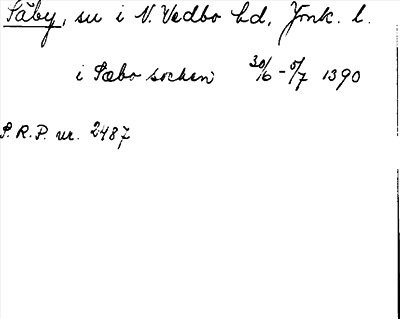 Säby, su i N. Vedbo hd, Jönk. l.
i Sæbo sochen 30/6 - 5/7 1390
S.R.P. nr. 2487